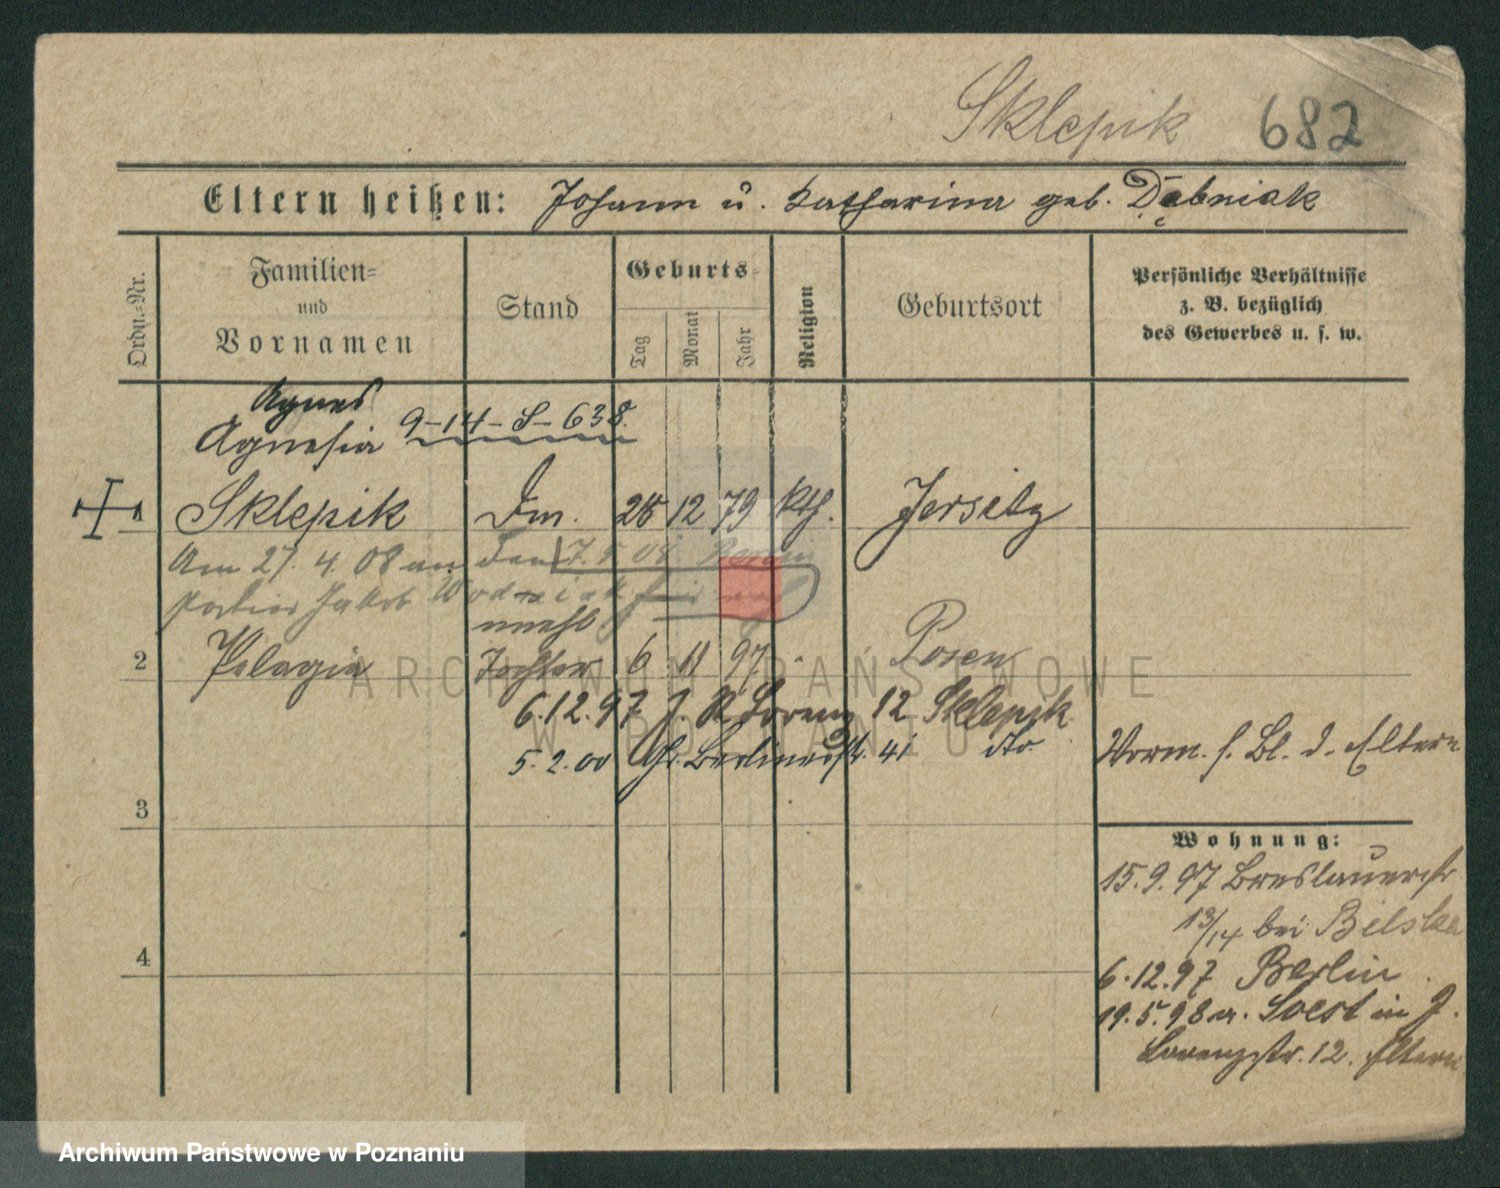 Sklepik 682
Eltern heißen: Johann u. Katharina geb. Dębniak
Ordn.-Nr.
Familien-
und
Vornamen
Stand
Geburts-
Tag
Monat
Jahr
Religion
Geburtsort
Persönliche Verhältnisse
z. B. bezüglich
des Gewerbes u. s. w.
Agnes
Agnesia 9-14-S-638.
1 Sklepik Dm. 28 12 79 kth. Jersitz
Am 27. 4. 08 an den 7. 5. 08
Jakob Wodniak
2 Pelagia Tochter 6 11 97. Posen
6.12.97 J. R Lorenz 12 Sklepik
5.2.00 Gr. Berlinerstr. 41 dto
Vorm. s. Bl. d. Eltern
3
Wohnung:
15.9.97 Breslauerstr
13/14 bei Bilska
4
6.12.97 Berlin
19.5.98 v. Soest in J.
Lorenzstr. 12. Eltern
ARCHIWUM PAŃSTWOWE
W POZNANIU
Archiwum Państwowe w Poznaniu